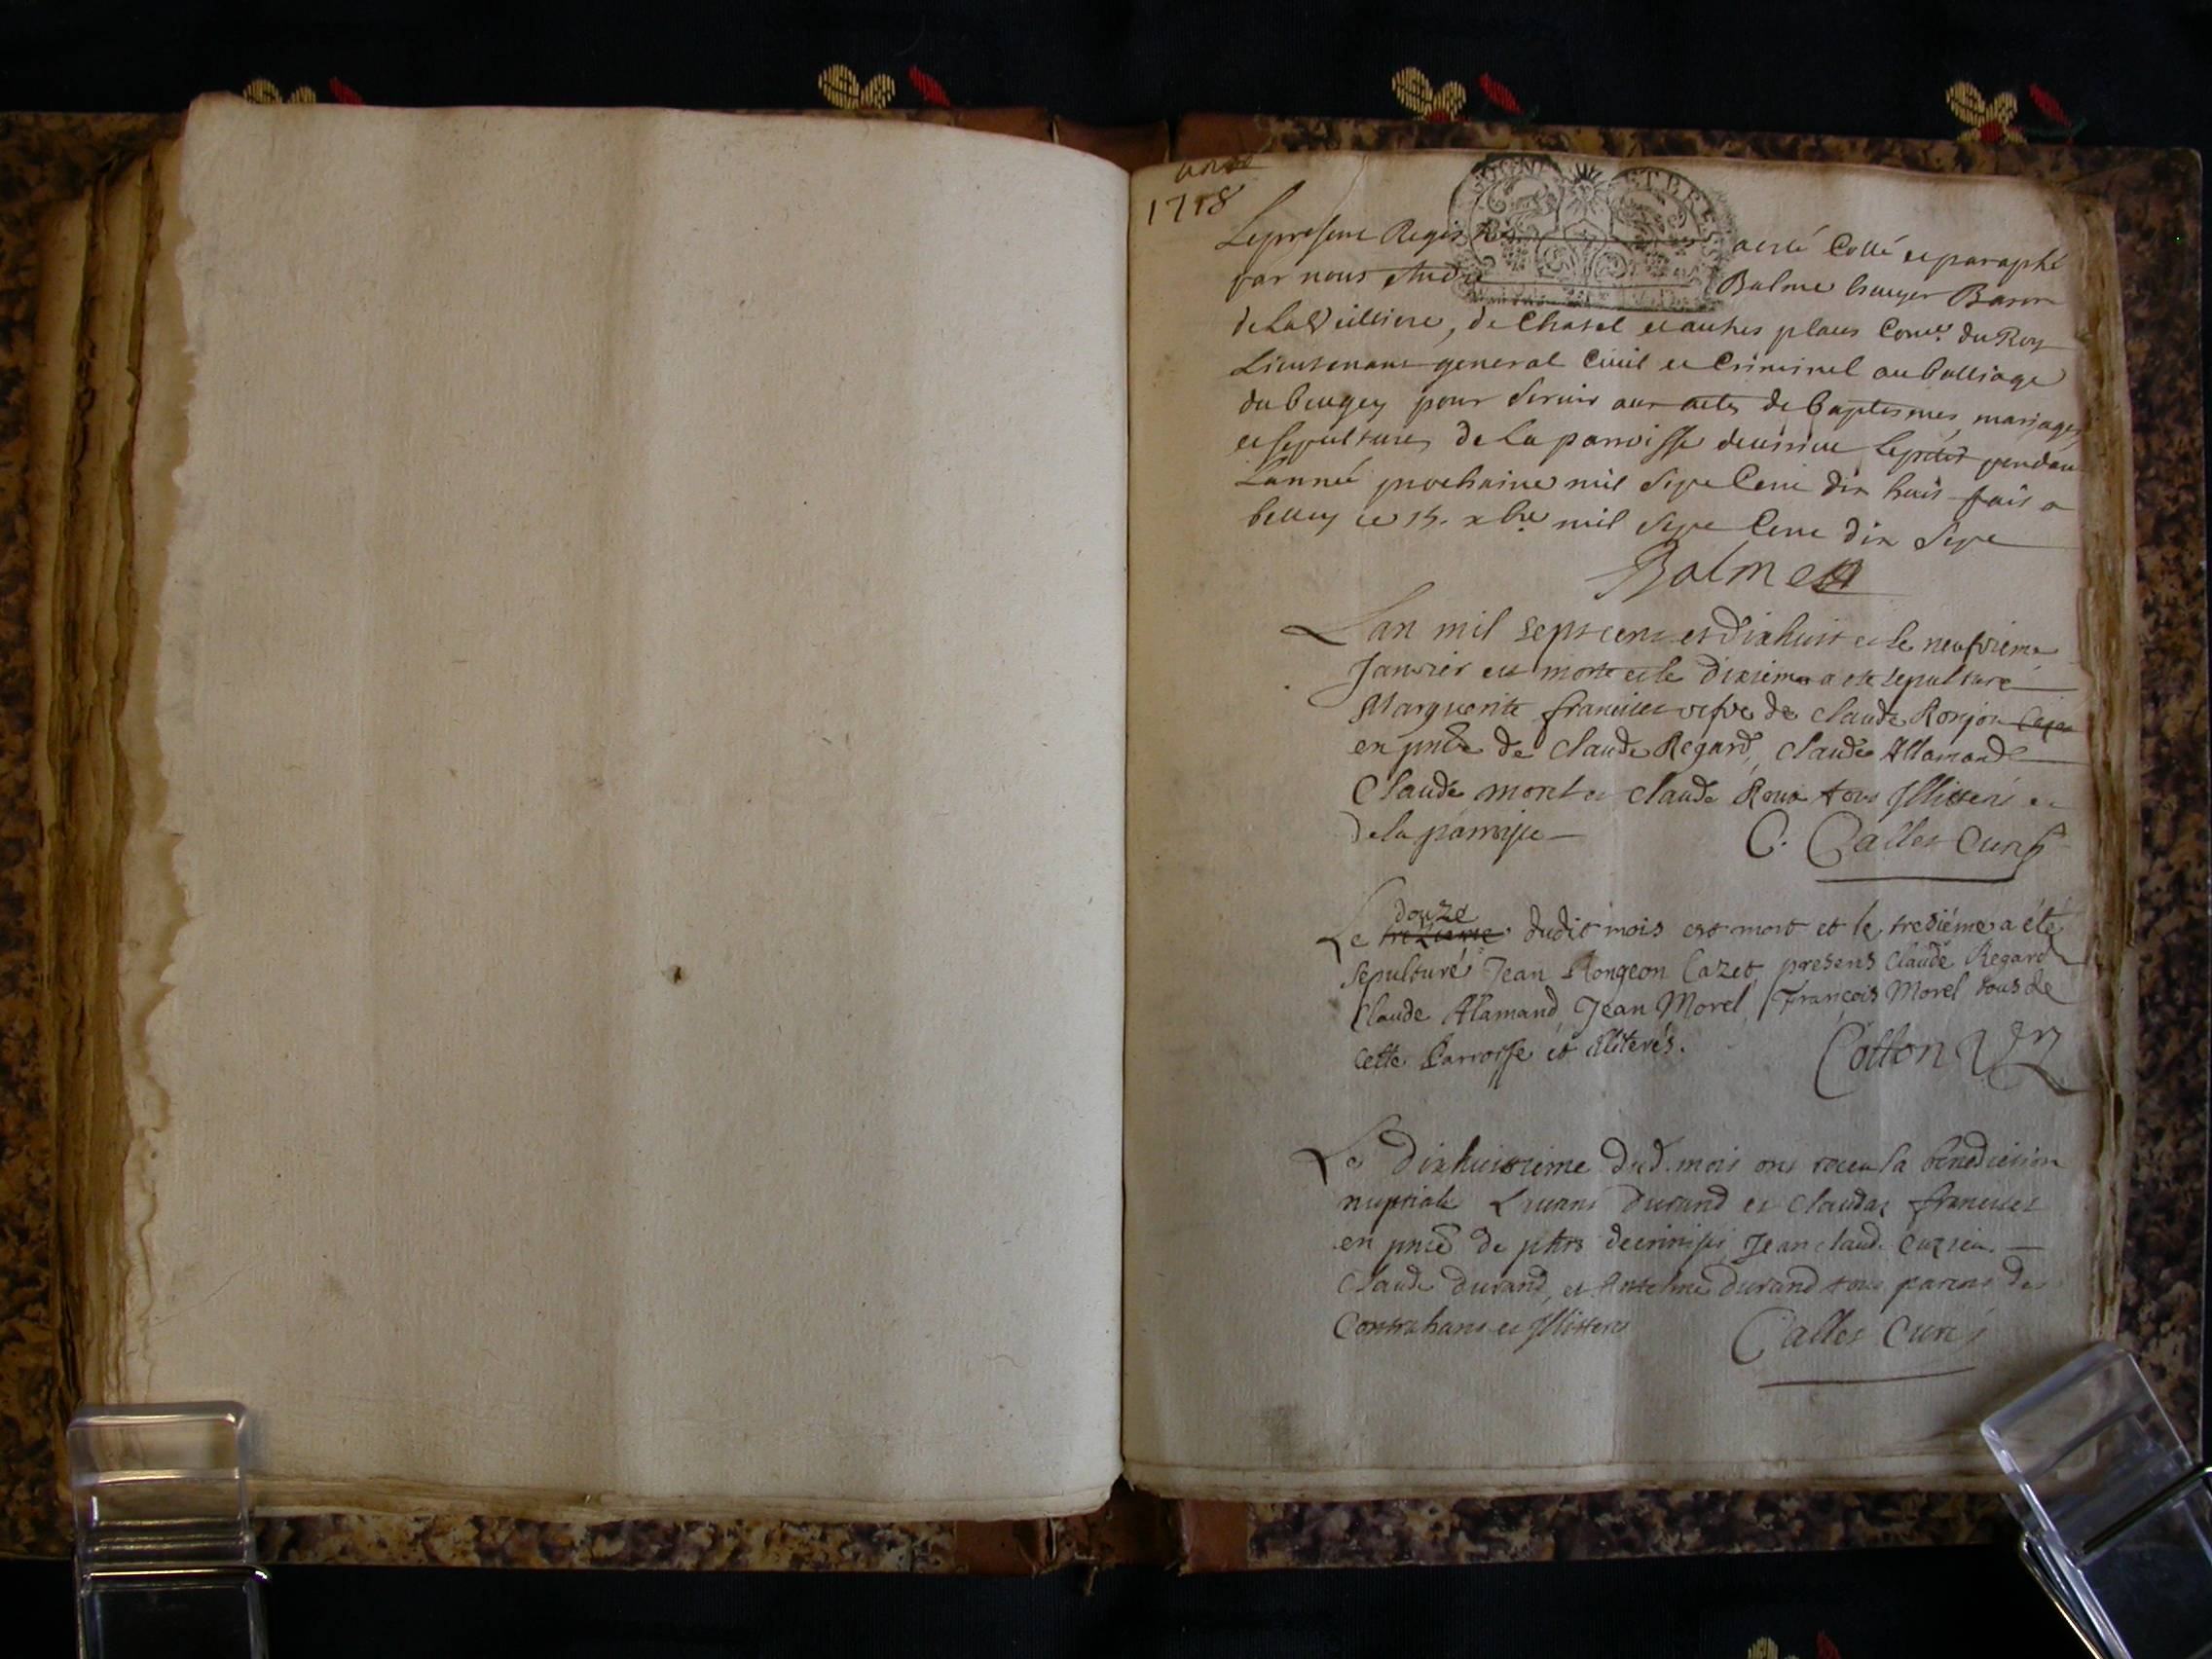 année
1718
Le present Registre a esté Cotté et paraphé
par nous Balme Escuyer Baron
de La Veilliere, de Chatel et autres places Con.er du Roy
Lieutenant general Civil et Criminel au balliage
du beugey pour servir aux actes de baptesmes, mariages
et sepultures de la parroisse pendant
Lannée prochaine mil sept Cent dix huit fait a
belley ce 15. xbre mil sept Cent dix sept
Balme
Lan mil sept cent et dixhuit et le neufvieme
Janvier est morte et le dixieme a esté sepulturé
Marguerite francillet vefve de Claude Ronjon
en pnce de Claude Regard, Claude Allamand
Claude morel et Claude Roux tous Illitteré et
de la parroisse
C. Callet Curé
douze
Le dudit mois est mort et le tresiéme a été
sepulturé Jean Rongeon Cazet presens Claude Regard
Claude Alamand, Jean Morel, François Morel tous de
cette Parroisse et illiterés.
Cotton
Le Dixhuitieme dud. mois ont receu la benediction
nuptiale Durand et Claudaz francillet
en pnce de Jean claude
Claude Durand, et Antelme Durand tous parens des
Contrahans et Illitteré
Callet Curé